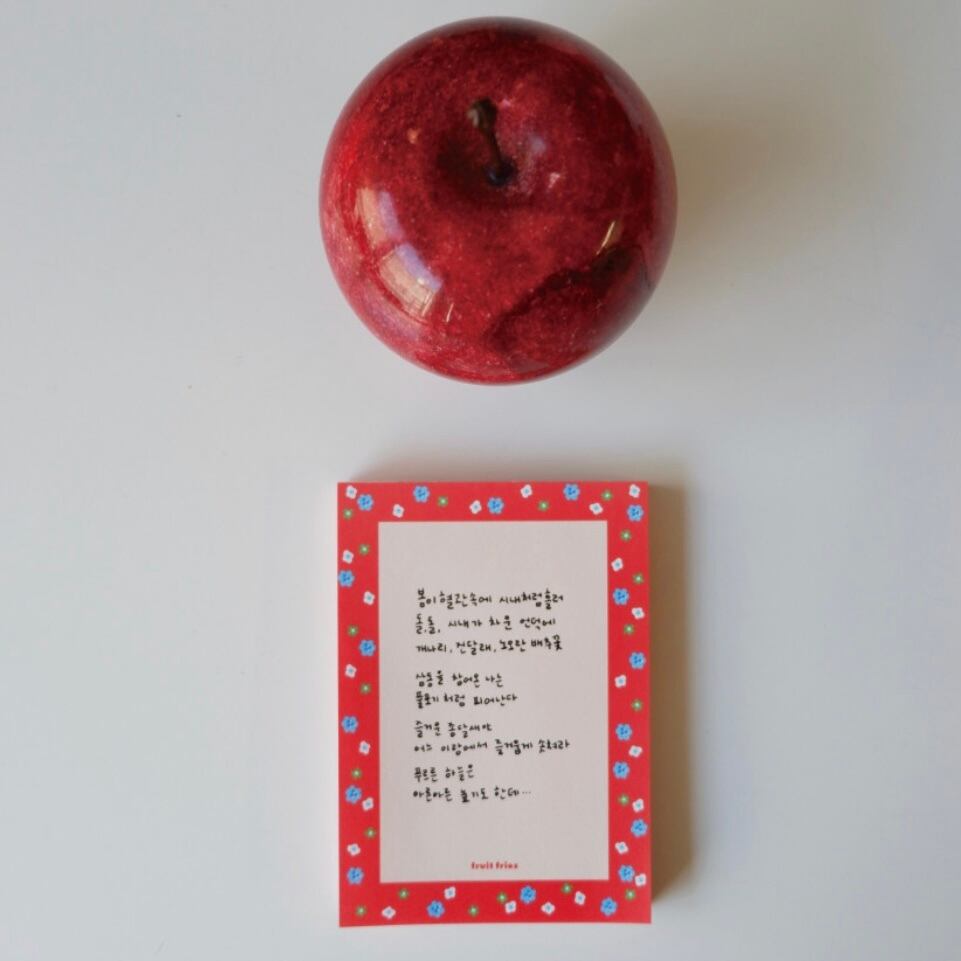 봄이 혈관속에 시내처럼흘러
돌,돌, 시내가 차운 언덕에
개나리, 진달래, 노오란 배추꽃
삼동을 참어온 나는
풀포기처럼 피어난다
즐거운 종달새야
어느 이랑에서 즐거웁게 솟쳐라
푸르른 하늘은
아른아른 높기도 한데...
fruit fries